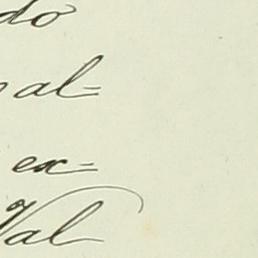 do
al=
ex=
Val